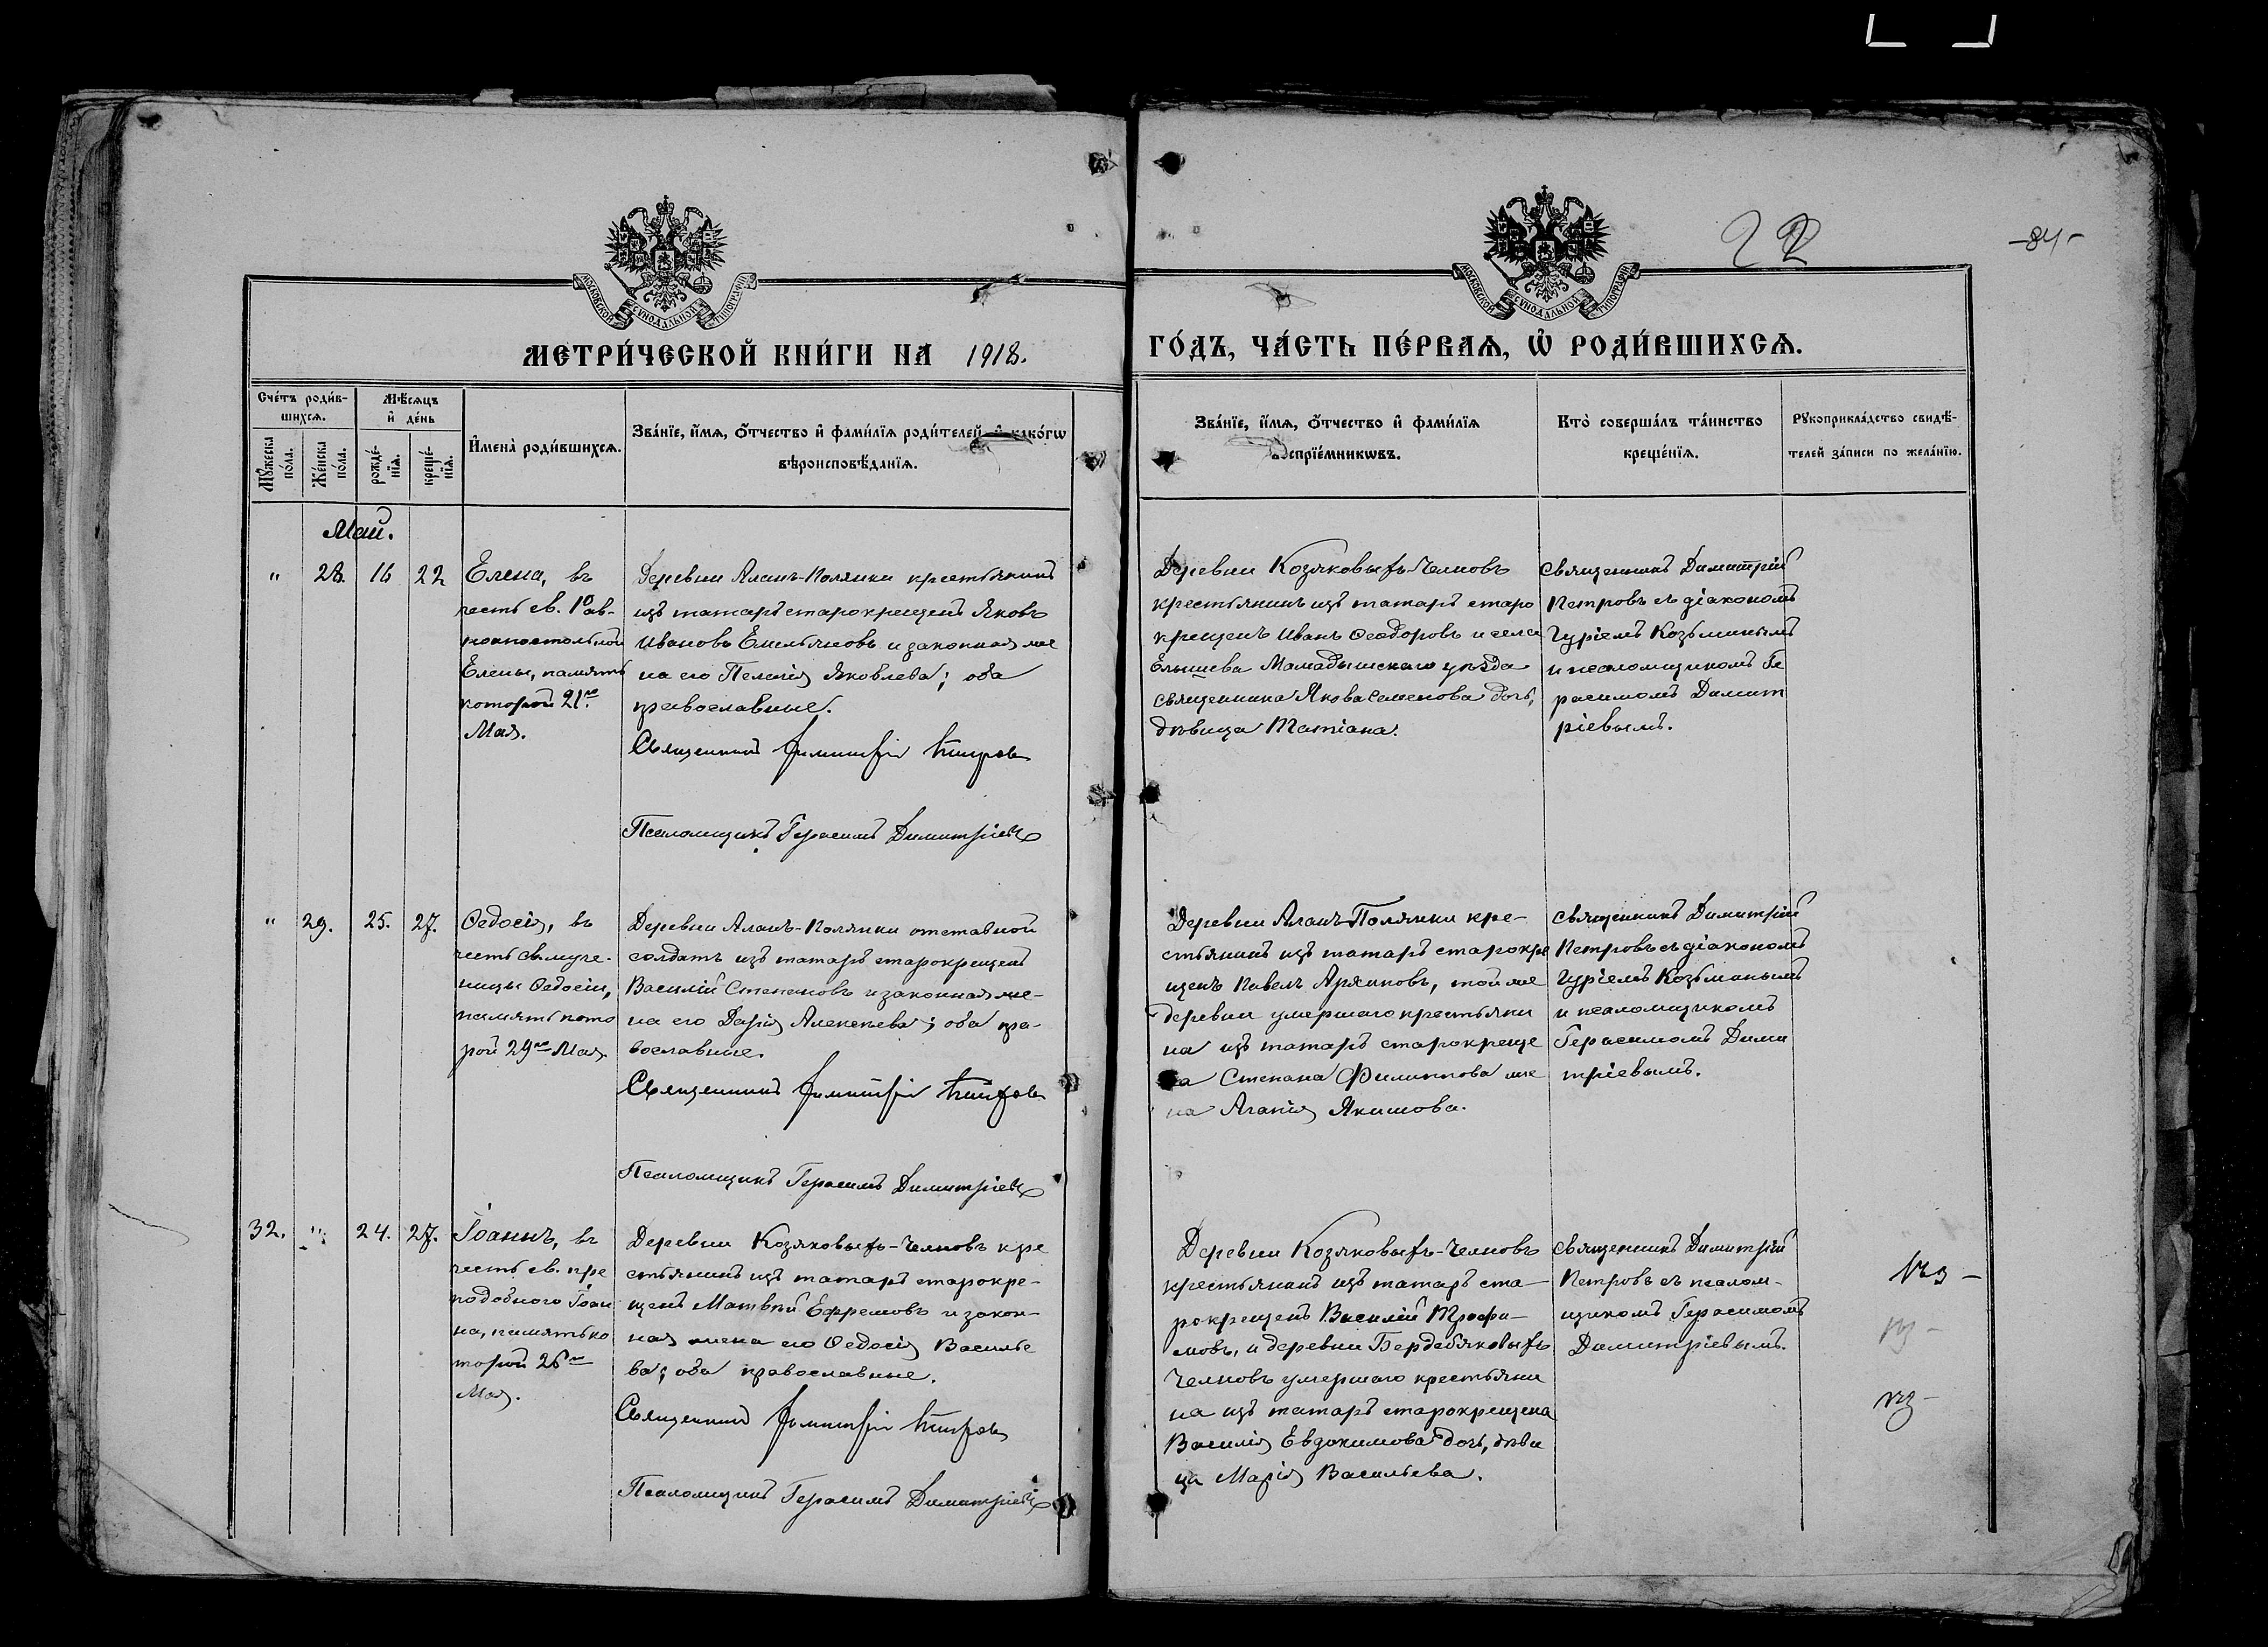 22
-84-
МОСКОВСКОЙ СѴНОДАЛЬНОЙ ТИПОГРАФІИ
МОСКОВСКОЙ СѴНОДАЛЬНОЙ ТИПОГРАФІИ
МЕТРИ́ЧЕСКОЙ КНИ́ГИ НА 1918.
ГО́ДЪ, ЧА́СТЬ ПЕ́РВАѦ, Ѡ҆ РОДИ́ВШИХСѦ.
Сче́тъ роди́в-
шихсѧ.
Мꙋжеска
по́ла.
Же́нска
по́ла.
Мѣ́сѧцъ
и҆ де́нь
рожде́-
нїѧ.
креще́-
нїѧ.
И҆мена̀ роди́вшихсѧ.
Зва́нїе, и҆́мѧ, ѻ҆́тчество и҆ фами́лїѧ роди́телей, и҆ како́гѡ
вѣроисповѣ́данїѧ.
Зва́нїе, и҆́мѧ, ѻ҆́тчество и҆ фами́лїѧ
воспрїе́мникѡвъ.
Кто̀ соверша́лъ та́инство
креще́нїѧ.
Рꙋкоприкла́дство свидѣ́-
телей за́писи по жела́нїю.
Май.
" 28. 16 22
Елена, въ
честь св. Равно
апостольной
Елены, память
которой 21го
Мая.
Деревни Аланъ-Полянки крестьянинъ
изъ татаръ старокрещенъ Яковъ
Ивановъ Емельяновъ и законная же
на его Пелагія Яковлева; оба
православные.
Священникъ Димитрій Петровъ
Псаломщикъ Герасимъ Димитріевъ
Деревни Козяковыхъ-Челновъ
крестьянинъ изъ татаръ старо
крещенъ Иванъ Ѳеодоровъ и села
Елышева Мамадышскаго уѣзда
священника Якова Семенова дочь,
дѣвица Татіана.
Священникъ Димитрій
Петровъ съ діакономъ
Гуріемъ Козьминымъ
и псаломщикомъ Ге
расимомъ Димит
ріевымъ.
" 29. 25. 27.
Ѳедосія, въ
честь св. муче-
ницы Ѳедосіи,
память кото
рой 29го Мая.
Деревни Аланъ-Полянки отставной
солдатъ изъ татаръ старокрещенъ
Василій Степановъ и законная же-
на его Дарія Алексѣева; оба пра-
вославные.
Священникъ Димитрій Петровъ
Псаломщикъ Герасимъ Димитріевъ
Деревни Аланъ-Полянки кре-
стьянинъ изъ татаръ старокре
щенъ Павелъ, той же
деревни умершаго крестьяни
на изъ татаръ старокреще
на Степана Филиппова же
на Агапія Якимова.
Священникъ Димитрій
Петровъ съ діакономъ
Гуріемъ Козьминымъ
и псаломщикомъ
Герасимомъ Дими
тріевымъ.
32. " 24. 27.
Іоаннъ, въ
честь св. пре
подобнаго Іоан
на, память ко
торой 26го
Мая.
Деревни Козяковыхъ-Челновъ кре
стьянинъ изъ татаръ старокре-
щенъ Матвѣй Ефремовъ и закон-
ная жена его Ѳедосія Василье
ва; оба православные.
Священникъ Димитрій Петровъ
Псаломщикъ Герасимъ Димитріевъ
Деревни Козяковыхъ-Челновъ
крестьянинъ изъ татаръ ста-
рокрещенъ Василій Трофи-
мовъ, и деревни Бердебяковыхъ
Челновъ умершаго крестьяни
на изъ татаръ старокрещена
Василія Евдокимова дочь, дѣви
ца Марія Васильева.
Священникъ Димитрій
Петровъ съ псалом-
щикомъ Герасимомъ
Димитріевымъ.